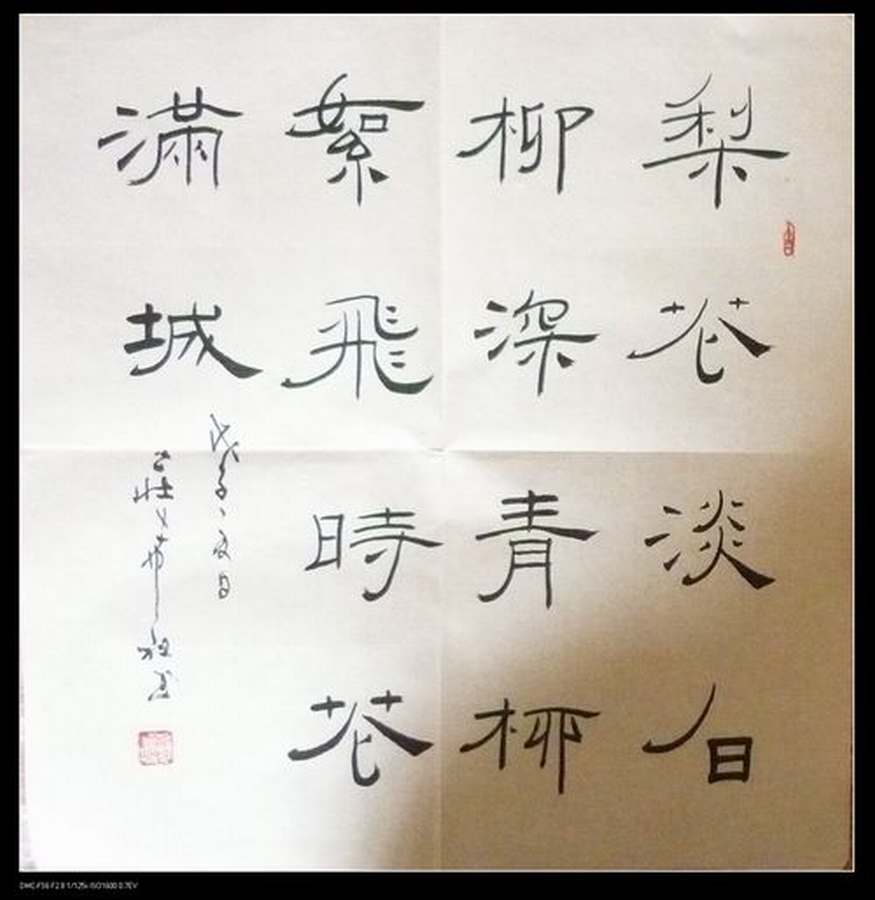 梨花淡白
柳深青柳
絮飛時花
滿城
戊子
DMC-FS6 F2.8 1/125s ISO1600 0.7EV